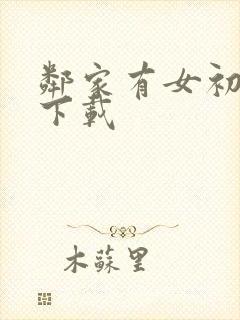 鄰家有女初
下載
木蘇里